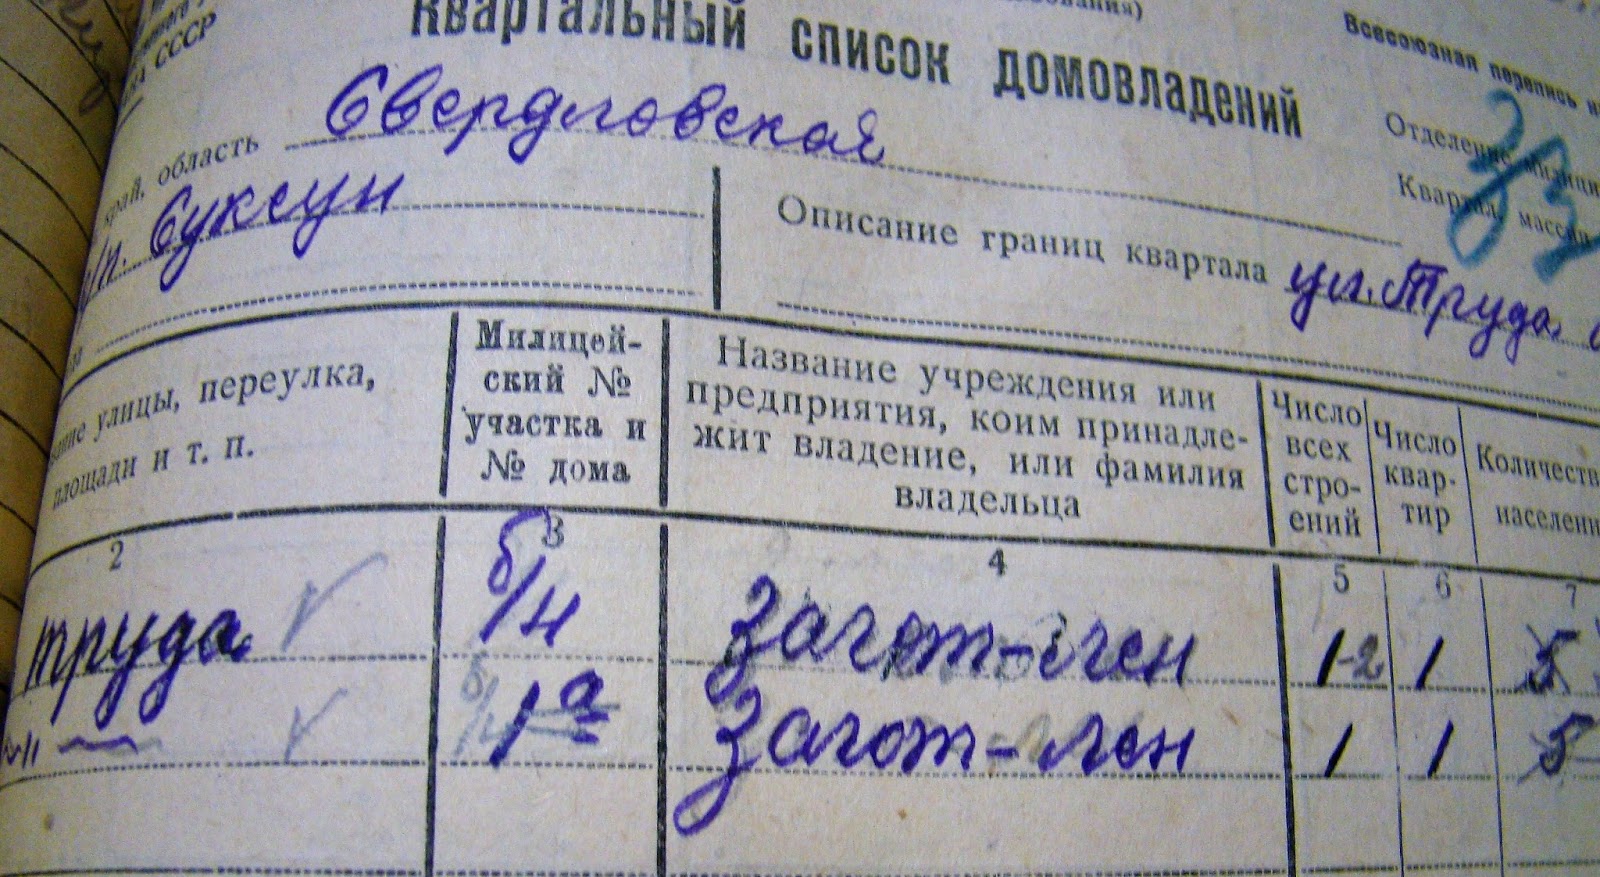 СССР
Квартальный список домовладений
Всесоюзная перепись
край, область Свердловская
Отделение милиции
Квартал, массив
33
р/п. Суксун
Описание границ квартала ул. Труда
улицы, переулка,
площади и т. п.
Милицей-
ский №
участка и
№ дома
Название учреждения или
предприятия, коим принадле-
жит владение, или фамилия
владельца
Число
всех
стро-
ений
Число
квар-
тир
Количеств
населени
2 3 4 5 6 7
Труда б/н Загот-лен 1-2 1 5
-"- 1а Загот-лен 1 1 5